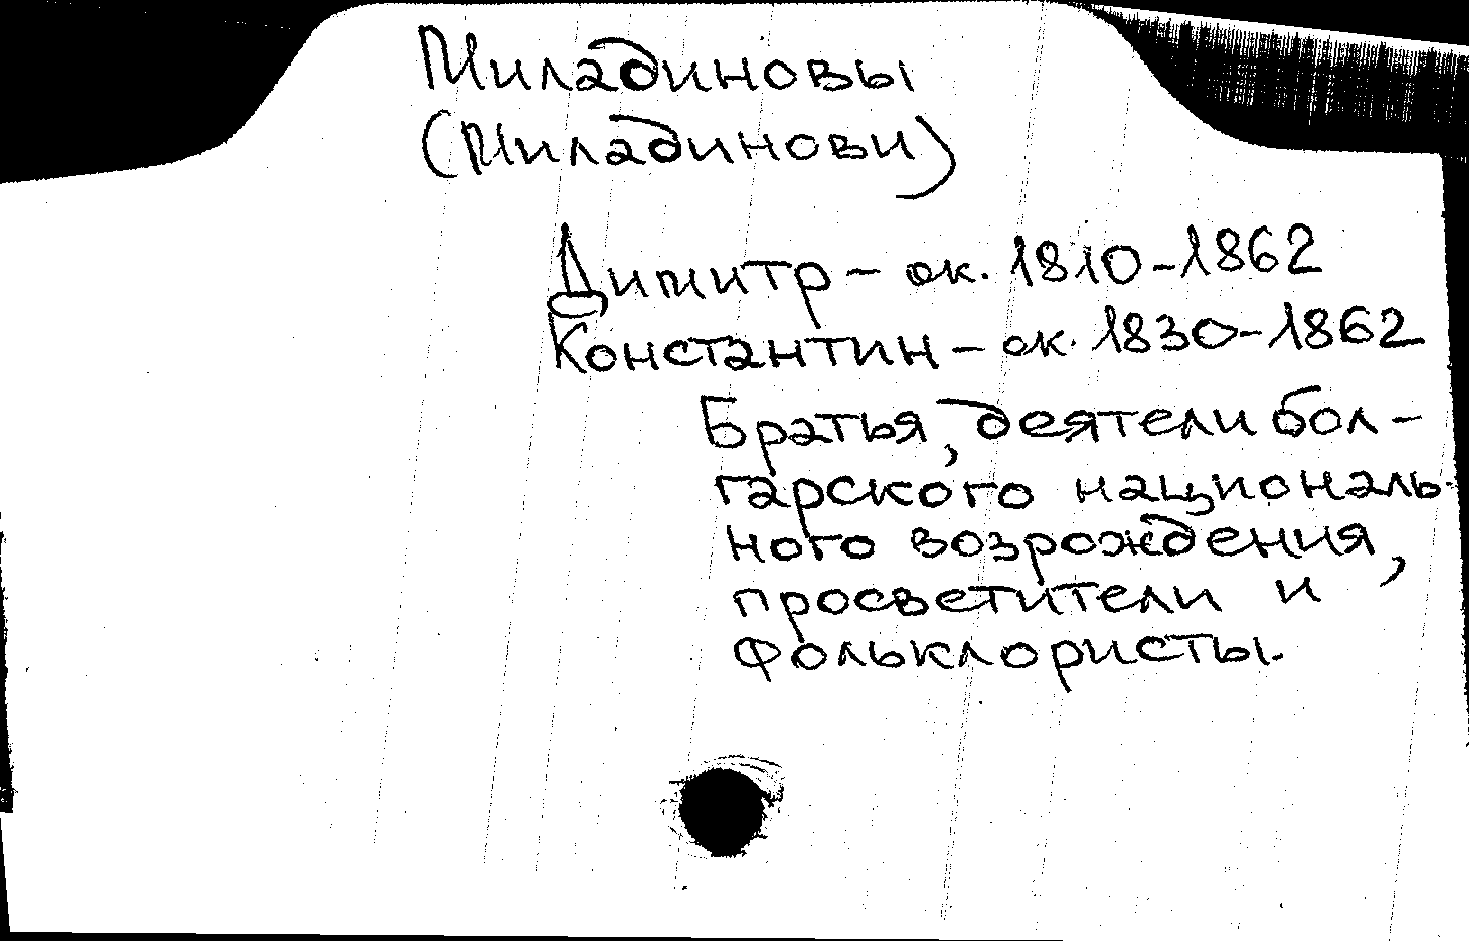 Миладиновы
(Миладинови)
Димитр – ок. 1810–1862
Константин – ок. 1830–1862
Братья, деятели бол-
гарского националь-
ного возрождения,
просветители и
фольклористы.